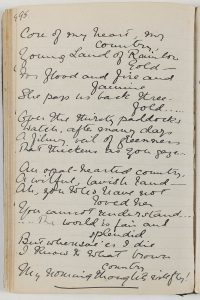 Core of my heart, my
Country,
Young Land of Rainbow
Gold —
For Flood and Fire and
Famine
She pays us back three-
fold....
Over the thirsty paddocks
Watch, after many days
A filmy veil of greenness
That thickens as you gaze...
An opal-hearted country
A wilful, lavish land —
Ah, you who have not
loved her
You cannot understand....
The World is fair and
splendid
But whensoe'er I die
I know to what brown
Country
My homing thoughts will fly!